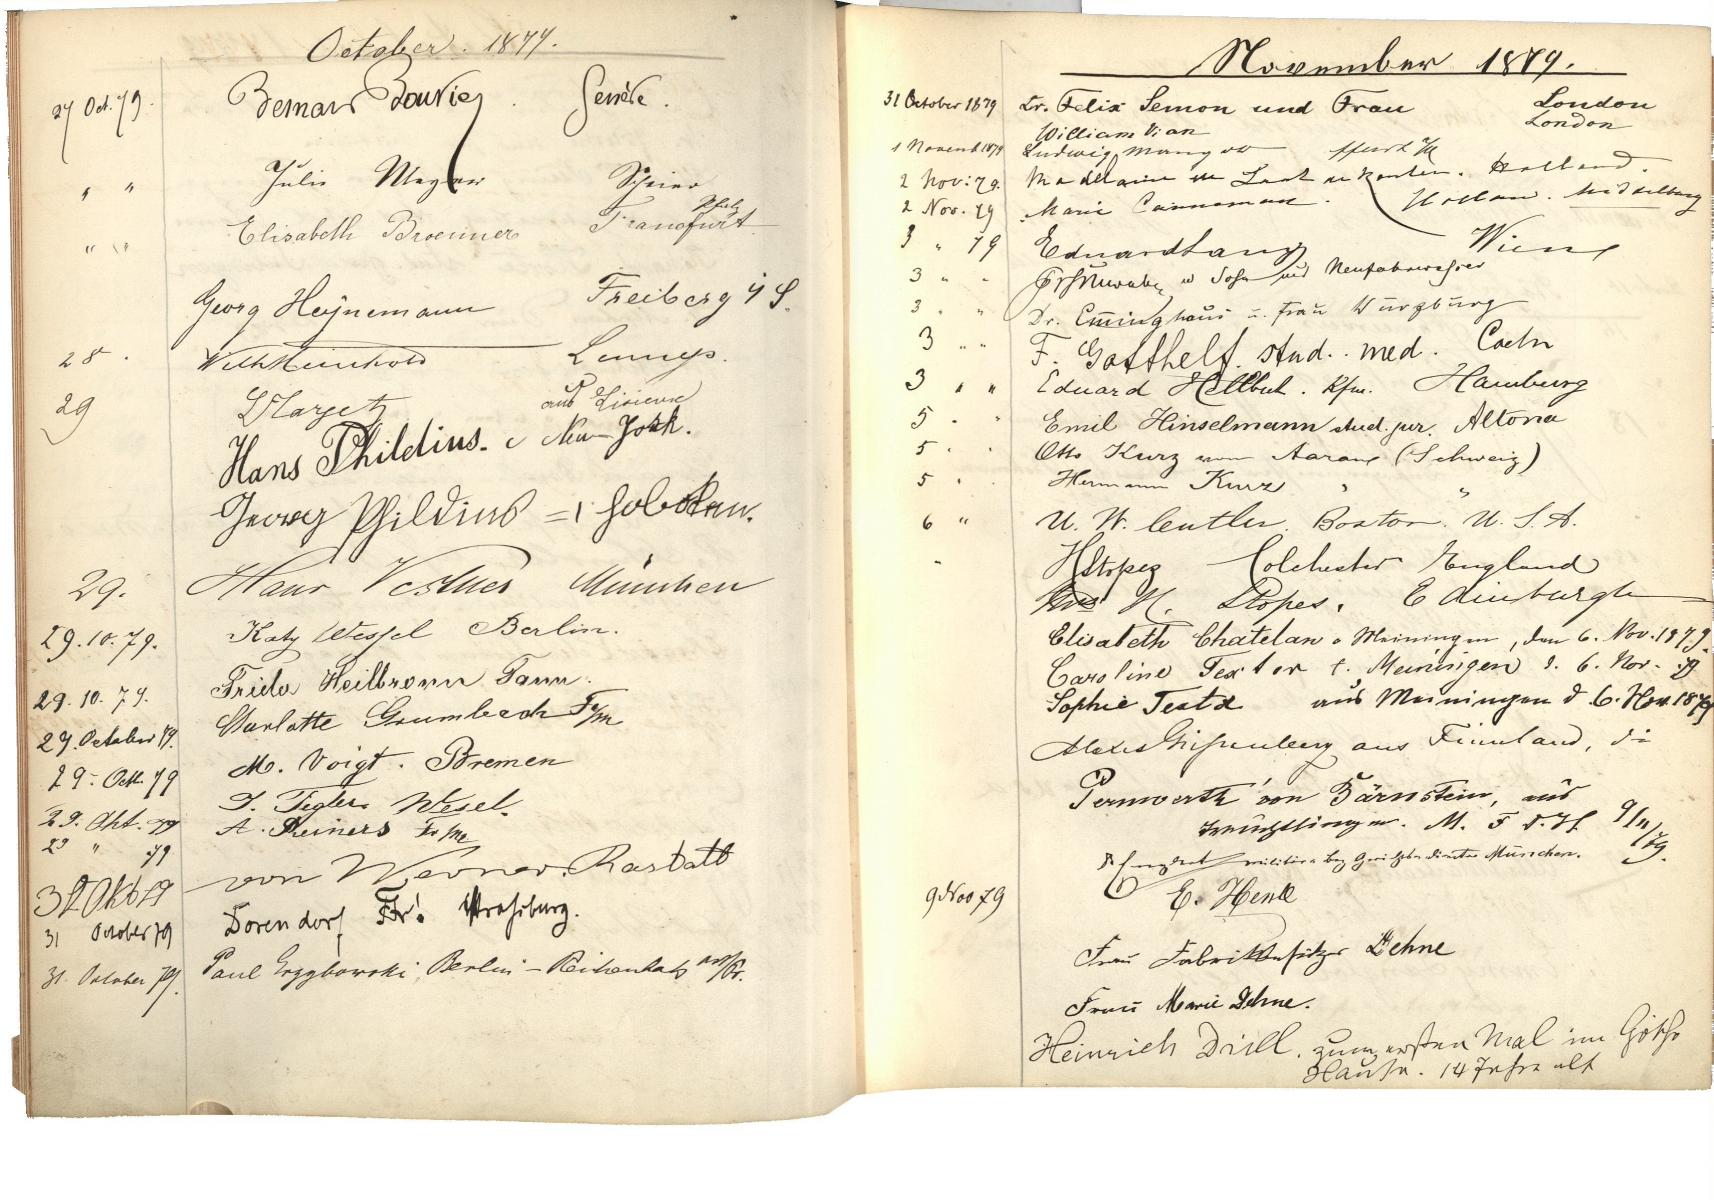 October. 1879.
27 Oct. 79. Bernard Bouvier. Genève.
" " Julie Meyer Speier
Pfalz
" " Elisabeth Broenner Francfurt
Georg Heynemann Freiberg i/S.
28. Lennep.
29
aus
Hans Phildius. New-York.
Georg Phildius = Hoboken.
29. Hans Vestner München
29.10.79. Katy Wessel Berlin.
29.10.79. Frida Heilbronn Tann.
29. October 79. Charlotte Grumbach F/M
29. Oct. 79 M. Voigt. Bremen
29. Okt. 79 Wesel.
29 " 79 A. Reiners Fr/M
31 Okt 79 von Werner. Rastatt
31 October 79 Dorendorf Fr. Strassburg.
31. October 79. Paul Grzybowski, Berlin –
November 1879.
31 October 1879 Dr. Felix Semon und Frau London
William Vian London
1 Novemb 1879 Ludwig
2 Nov: 79. Holland.
2 Nov. 79 Marie Holland. Middelburg
3 " 79 Eduard Lang Wien
3 " " u Sohn aus
3 " " Dr. Emminghaus u. Frau Würzburg
3 " " F. Gotthelf. stud. med. Coeln
3 " " Eduard Heilbut. Kfm. Hamburg
5 " " Emil Hinselmann stud. jur. Altona
5 " " Otto Kurz von Aarau (Schweiz)
5 " Hermann Kurz " "
6 " U. W. Cutler. Boston. U. S. A.
" H Stopes Colchester England
Mrs H. Stopes. Edinburgh
Elisabeth Chatelan a Meiningen, den 6. Nov. 1879.
Caroline Textor Meiningen d. 6. Nov. 79
Sophie Textor aus Meiningen d. 6. Nov. 1879
aus Finnland,
Pernwerth von Bärnstein, aus
Treuchtlingen. M. 9/11
79.
München.
9. Nov 79 E. Henle
Frau Fabrikbesitzer Dehne
Frau Marie Dehne.
Heinrich Drill. zum ersten Mal im Göthe
Hause. 14 Jahre alt